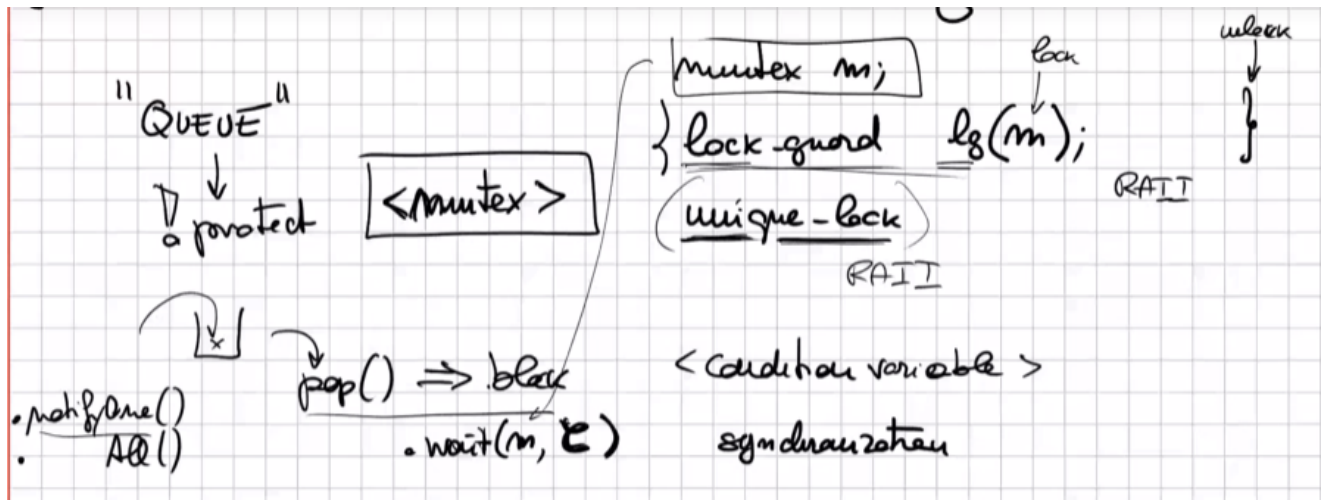 "QUEUE"
! protect
<mutex>
mutex m;
lock
unlock
{ lock_guard lg(m); }
RAII
(unique_lock)
RAII
x
pop() => block
<condition variable>
.notifyOne()
. All()
.wait(m, C)
synchronization